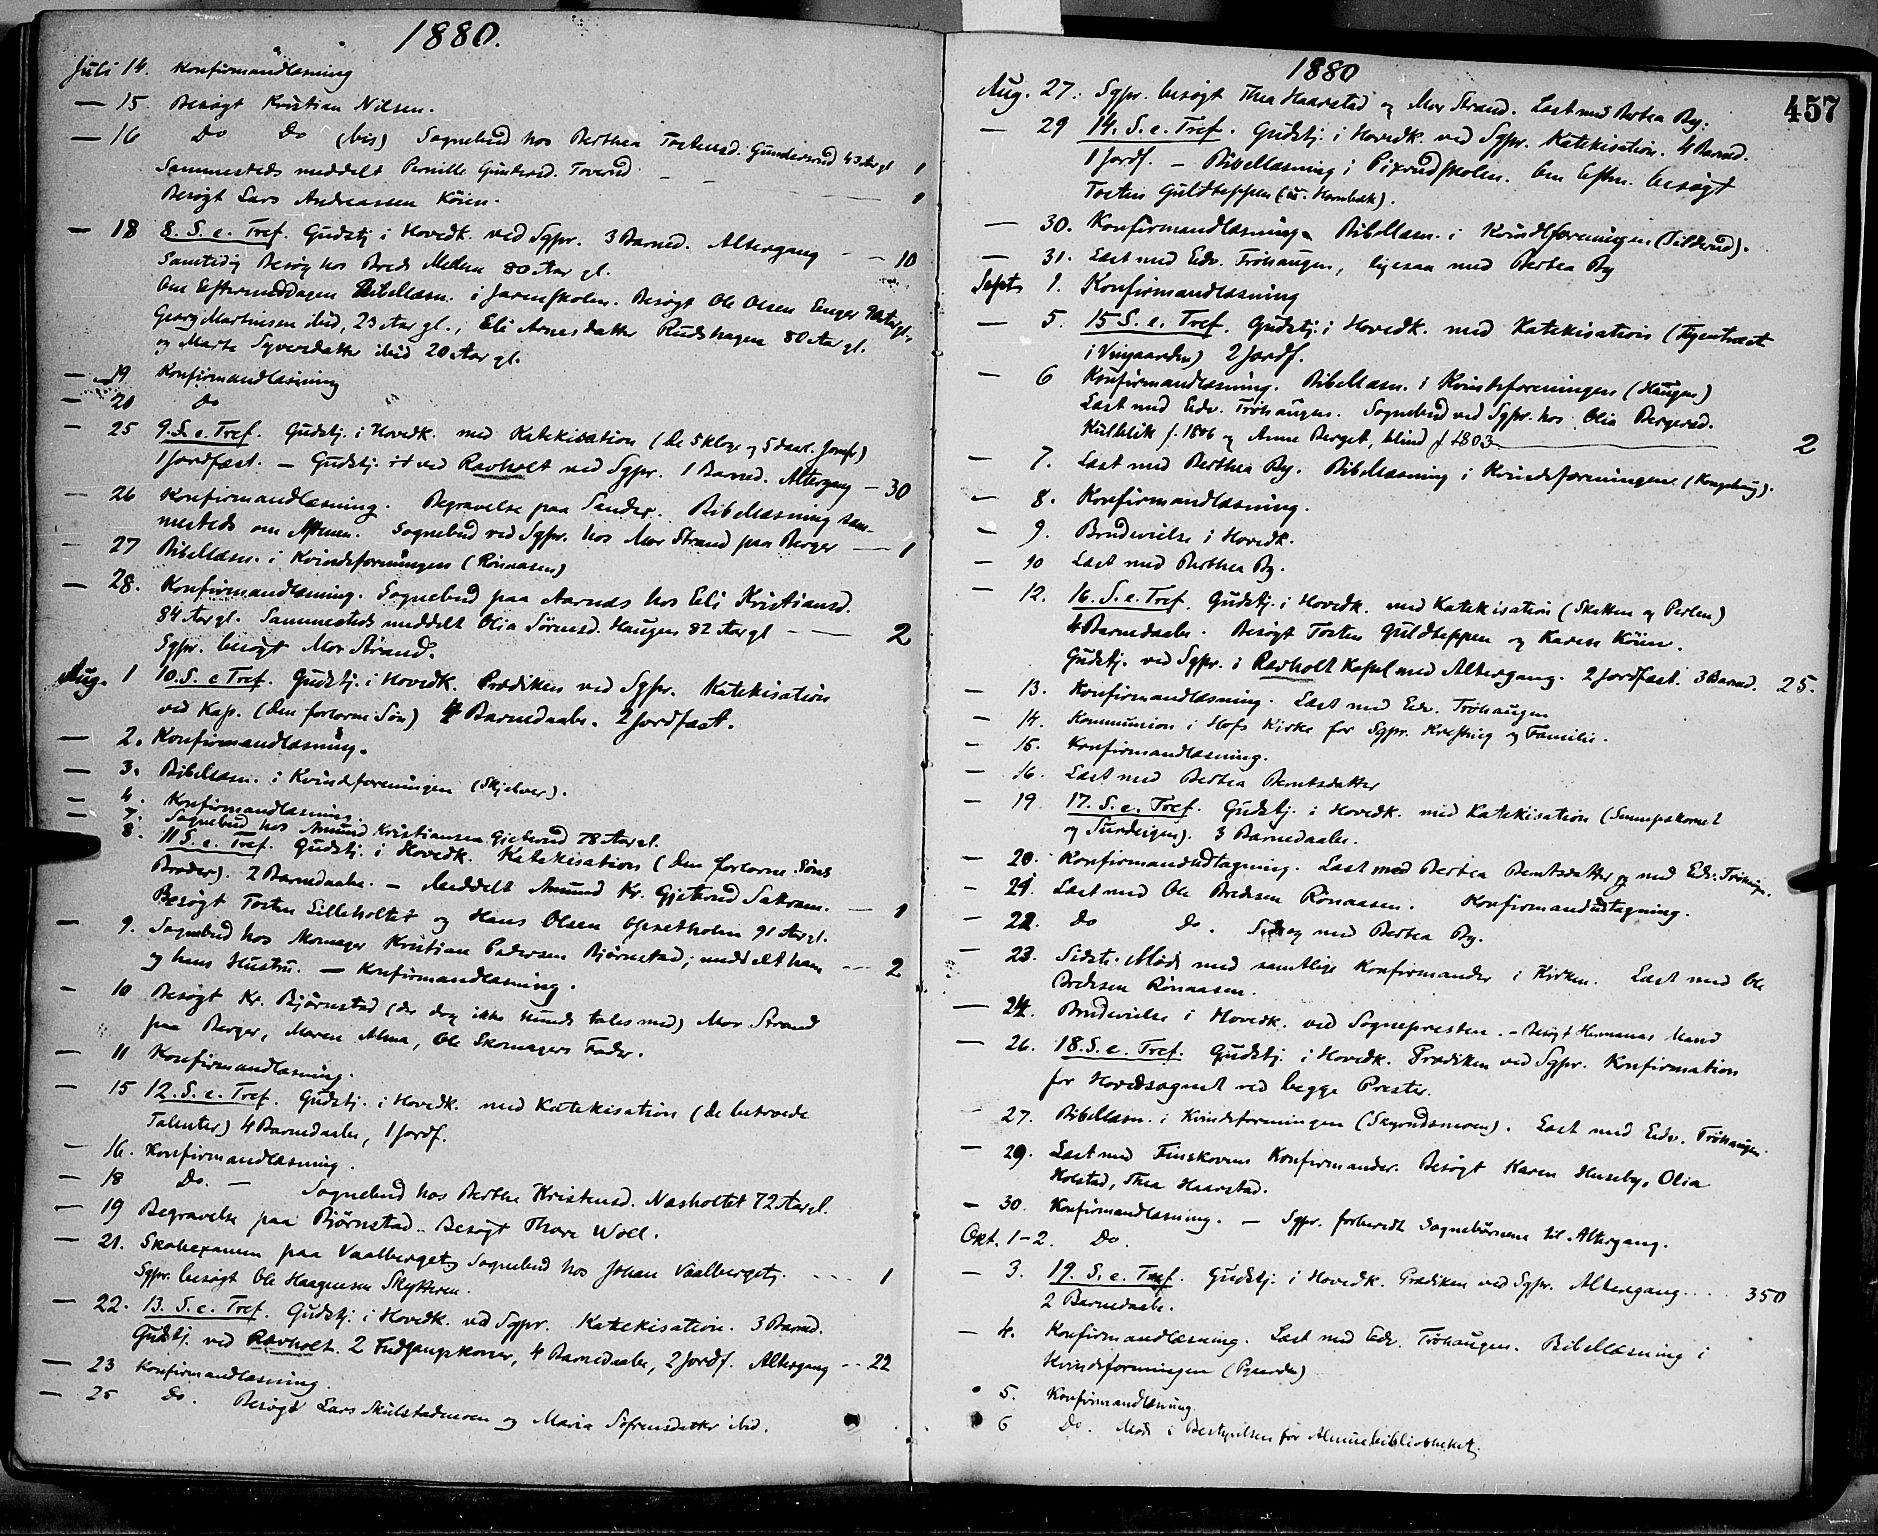 1880.
Juli 14. Konfirmandlæsning
— 15. Besøgt Kristian Nilsen.
— 16 Do Do (bis) Sognebud hos Berthea Torstensd. Gundersrud 43 Aar gl 1
Sammesteds meddelt Pernille Gundersd. Toverud — 1
Besøgt Lars Andreassen Köien.
— 18 8. S. e. Tref. Gudstj. i Hovedk. ved Sgpr. 3 Barned. Altergang — — 10
Samtidig Besøg hos Bred Mellem 80 Aar gl.
Om Eftermiddagen Bibellæsn. i Jarenskolen. Besøgt Ole Olsen Enger Aar gl.,
Georg Martinsen ibid, 23 Aar gl., Eli Arnesdatter Rudshagen 80 Aar gl.
og Marte Syversdatter ibid 20 Aar gl.
— 19 Konfirmandlæsning
— 20 Do
— 25 9. S. e. Tref. Gudstj. i Hovedk. med Katekisation (De 5 kloge og 5 daarl. Jomfr)
1 Jordfæst. — Gudstj. ved Ravholt ved Sgpr. 1 Barned. Altergang — 30
— 26 Konfirmandlæsning. Begravelse paa Sander. Bibellæsning sam-
mesteds om Aftenen. Sognebud ved Sgpr. hos Mor Strand paa Berger — 1
— 27 Bibellæsn. i Kvindeforeningen (Rönaasen)
— 28. Konfirmandlæsning. Sognebud paa Aarnæs hos Eli Kristiansd.
84 Aar gl. Sammesteds meddelt Olia Sørensd. Haugen 82 Aar gl — — 2
Sgpr. besøgt Mor Strand.
Aug. 1 10. S. e Tref. Gudstj. i Hovedk. Prædiken ved Sgpr. Katekisation
ved Kap. (Den forlorne Søn) 4 Barnedaabe. 2 Jordfæst.
— 2. Konfirmandlæsning.
— 3. Bibellæsn. i Kvindeforeningen (Skjelver).
— 4. Konfirmandlæsning.
— 7. Sognebud hos Amund Kristiansen Gjeterud 78 Aar gl.
— 8. 11 S. e. Tref. Gudstj. i Hovedk. Katekisation (Den forlorne Søns
Broder). 2 Barnedaabe. — Meddelt Amund Kr. Gjeterud Sakram. — 1
Besøgt Torsten Lilleholtet og Hans Olsen Ognetholm 91 Aar gl.
— 9. Sognebud hos Momager Kristian Pedersen Bjørnstad; meddelt ham
og hans Hustru. — Konfirmandlæsning. — 2
— 10 Besøgt Kr. Bjørnstad (der dog ikke kunde tales med) Mor Strand
paa Berger, Maren Alma, Ole Skomagers Fader.
— 11 Konfirmandlæsning.
— 15 12. S. e. Tref. Gudstj. i Hovedk. med Katekisation (de betroede
Talenter) 4 Barnedaabe, 1 Jordf.
— 16. Konfirmandlæsning.
— 18 Do. — Sognebud hos Berthe Kristensd. Næsholtet 72 Aar gl.
— 19 Begravelse paa Bjørnstad. Besøgt Thore Woll.
— 21. Skoleexamen paa Vaalberget, Sognebud hos Johan Vaalberget. — 1
Sgpr. besøgt Ole Haagensen Skytteren.
— 22. 13. S. e. Tref. Gudstj. i Hovedk. ved Sgpr. Katekisation. 3 Barned.
Gudstj. ved Ravholt. 2 Indgangskoner, 4 Barnedaabe, 2 Jordf. Altergang — 22
— 23 Konfirmandlæsning
— 25 Do. Besøgt Lars Skulstadmoen og Maria Sofrensdatter ibid.
1880
457
Aug. 27: Sgpr. besøgt Thea Haarstad og Mor Strand. Læst med Berthea By.
— 29 14. S. e. Tref. Gudstj. i Hovedk. ved Sgpr. Katekisation. 4 Barned.
1 Jordf. — Bibellæsning i Pixrudskolen. Om Eftm. besøgt
Torsten Guldteppen (u. Hornbæk).
— 30. Konfirmandlæsning. Bibellæsn. i Kvindeforeningen (Tilderud).
— 31. Læst med Edv. Tröhaugen, ligesaa med Berthea By
Sept. 1. Konfirmandlæsning
— 5. 15 S. e. Tref. Gudstj. i Hovedk. med Katekisation (Figentræet
i Vingaarden) 2 Jordf.
— 6 Konfirmandlæsning. Bibellæsn. i Kvindeforeningen (Haugen)
Læst med Edv. Tröhaugen. Sognebud ved Sgpr. hos Olia Bergersd.
Kulblik f. 1806 og Anne Berget, blind f. 1803 — 2
— 7. Læst med Berthea By. Bibellæsning i Kvindeforeningen (Kongshaug).
— 8. Konfirmandlæsning.
— 9. Brudevielse i Hovedk.
— 10 Læst med Berthea By.
— 12. 16. S. e. Tref. Gudstj. i Hovedk. med Katekisation (Skatten og Perlen)
4 Barnedaabe. Besøgt Torsten Guldteppen og Karen Köien.
Gudstj. ved Sgpr. i Ravholt Kapel med Altergang. 2 Jordfæst. 3 Barned. 25.
— 13. Konfirmandlæsning. Læst med Edv. Tröhaugen
— 14. Kommunion i Hofs Kirke for Sgpr. og Familie.
— 15. Konfirmandlæsning.
— 16. Læst med Berthea Berntsdatter
— 19 17. S. e. Tref. Gudstj. i Hovedk. med Katekisation (Sennepskornet
og Surdeigen). 3 Barnedaabe.
— 20. Konfirmandudtagning. Læst med Berthea Berntsdatter og med Edv. Tröhaugen.
— 21. Læst med Ole Bredesen Rönaasen. Konfirmandudtagning.
— 22. Do Do. og med Berthea By.
— 23. Sidste Møde med samtlige Konfirmander i Kirken. Læst med Ole
Bredesen Rönaasen.
— 24. Brudevielse i Hovedk. ved Sognepresten. — Besøgt Hermanas Mand
— 26. 18. S. e. Tref. Gudstj. i Hovedk. Prædiken ved Sgpr. Konfirmation
for Hovedsognet ved begge Prester.
— 27. Bibellæsn. i Kvindeforeningen (Skyrudsmoen). Læst med Edv. Tröhaugen.
— 29. Læst med Finskovens Konfirmander. Besøgt Karen Huseby, Olia
Holstad, Thea Haarstad.
— 30. Konfirmandlæsning. — Sgpr. forberedt Sognebørnene til Altergang.
Okt. 1-2. Do.
— 3. 19. S. e. Tref. Gudstj. i Hovedk. Prædiken ved Sgpr. Altergang . . . . 350
2 Barnedaabe.
— 4. Konfirmandlæsning. Læst med Edv. Tröhaugen. Bibellæsning i
Kvindeforeningen
5. Konfirmandlæsning
6 Do. Møde i Bestyrelsen for Almuebibliotheket.